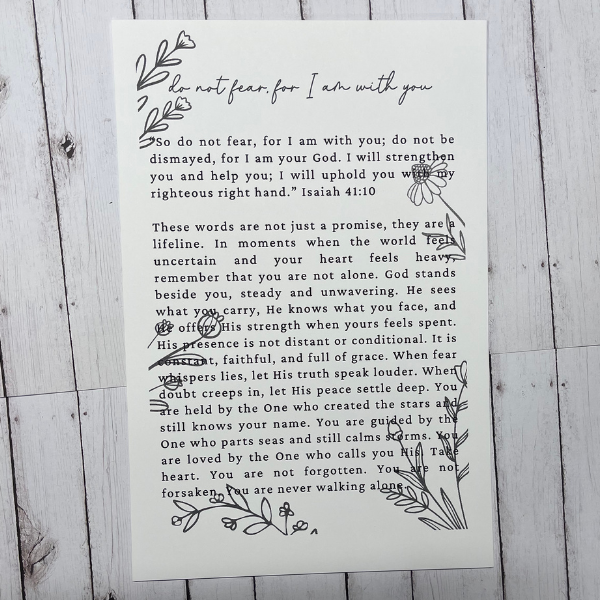 do not fear, for I am with you
"So do not fear, for I am with you; do not be
dismayed, for I am your God. I will strengthen
you and help you; I will uphold you with my
righteous right hand." Isaiah 41:10
These words are not just a promise, they are a
lifeline. In moments when the world feels
uncertain and your heart feels heavy,
remember that you are not alone. God stands
beside you, steady and unwavering. He sees
what you carry, He knows what you face, and
He offers His strength when yours feels spent.
His presence is not distant or conditional. It is
constant, faithful, and full of grace. When fear
whispers lies, let His truth speak louder. When
doubt creeps in, let His peace settle deep. You
are held by the One who created the stars and
still knows your name. You are guided by the
One who parts seas and still calms storms. You
are loved by the One who calls you His. Take
heart. You are not forgotten. You are not
forsaken. You are never walking alone.